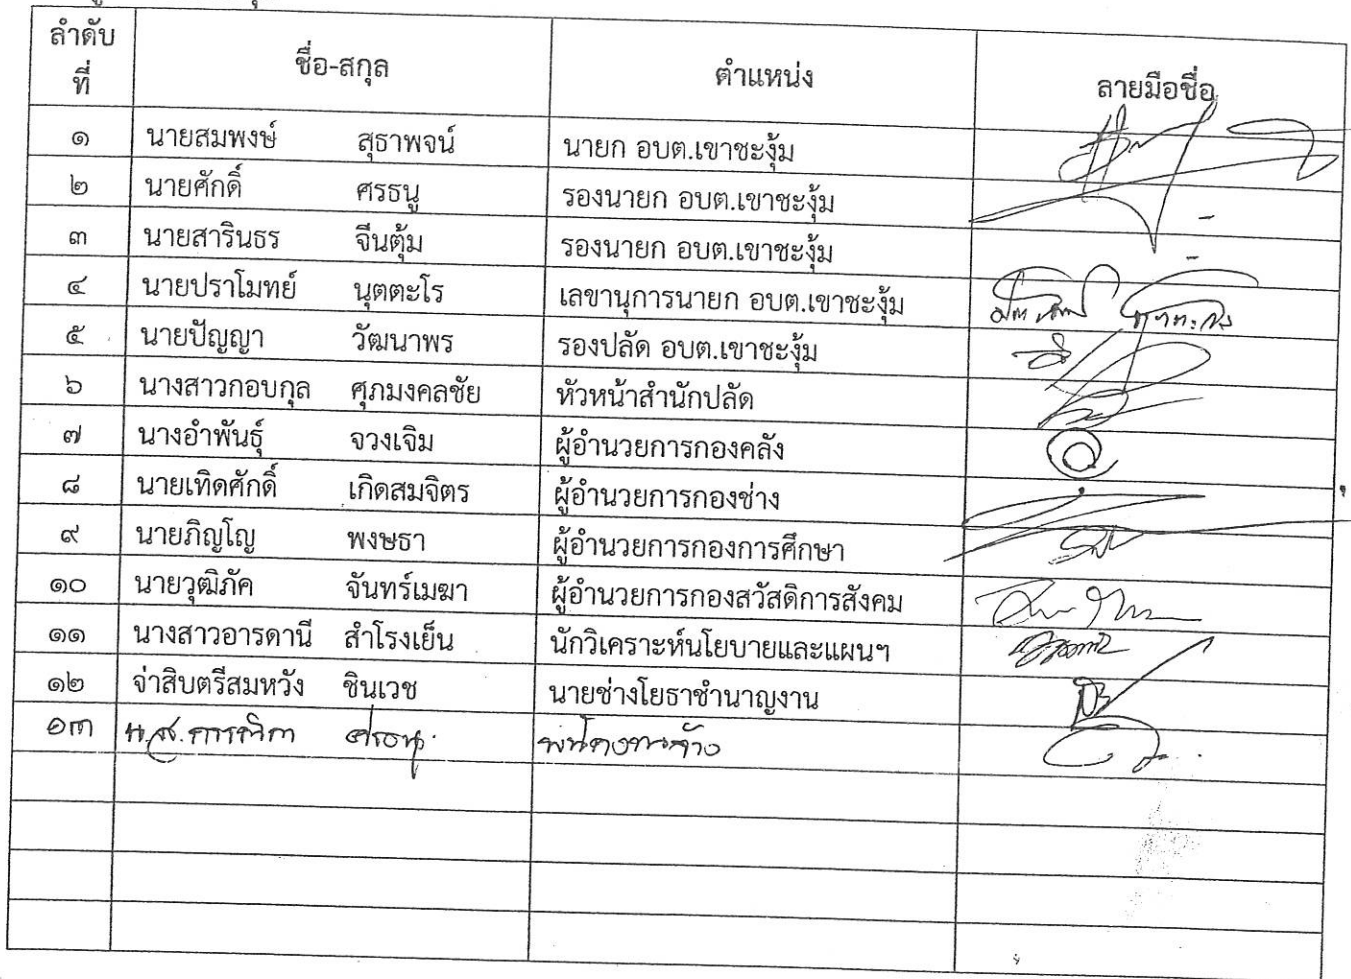 ลำดับ
ที่
ชื่อ-สกุล
ตำแหน่ง
ลายมือชื่อ
๑ นายสมพงษ์ สุธาพจน์ นายก อบต.เขาชะงุ้ม
๒ นายศักดิ์ ศรธนู รองนายก อบต.เขาชะงุ้ม -
๓ นายสารินธร จีนตุ้ม รองนายก อบต.เขาชะงุ้ม -
๔ นายปราโมทย์ นุตตะโร เลขานุการนายก อบต.เขาชะงุ้ม
๕ นายปัญญา วัฒนาพร รองปลัด อบต.เขาชะงุ้ม
๖ นางสาวกอบกุล ศุภมงคลชัย หัวหน้าสำนักปลัด
๗ นางอำพันธุ์ จวงเจิม ผู้อำนวยการกองคลัง
๘ นายเทิดศักดิ์ เกิดสมจิตร ผู้อำนวยการกองช่าง
๙ นายภิญโญ พงษธา ผู้อำนวยการกองการศึกษา
๑๐ นายวุฒิภัค จันทร์เมฆา ผู้อำนวยการกองสวัสดิการสังคม
๑๑ นางสาวอารดานี สำโรงเย็น นักวิเคราะห์นโยบายและแผนฯ
๑๒ จ่าสิบตรีสมหวัง ชินเวช นายช่างโยธาชำนาญงาน
๑๓ น.ส. ศรธนู